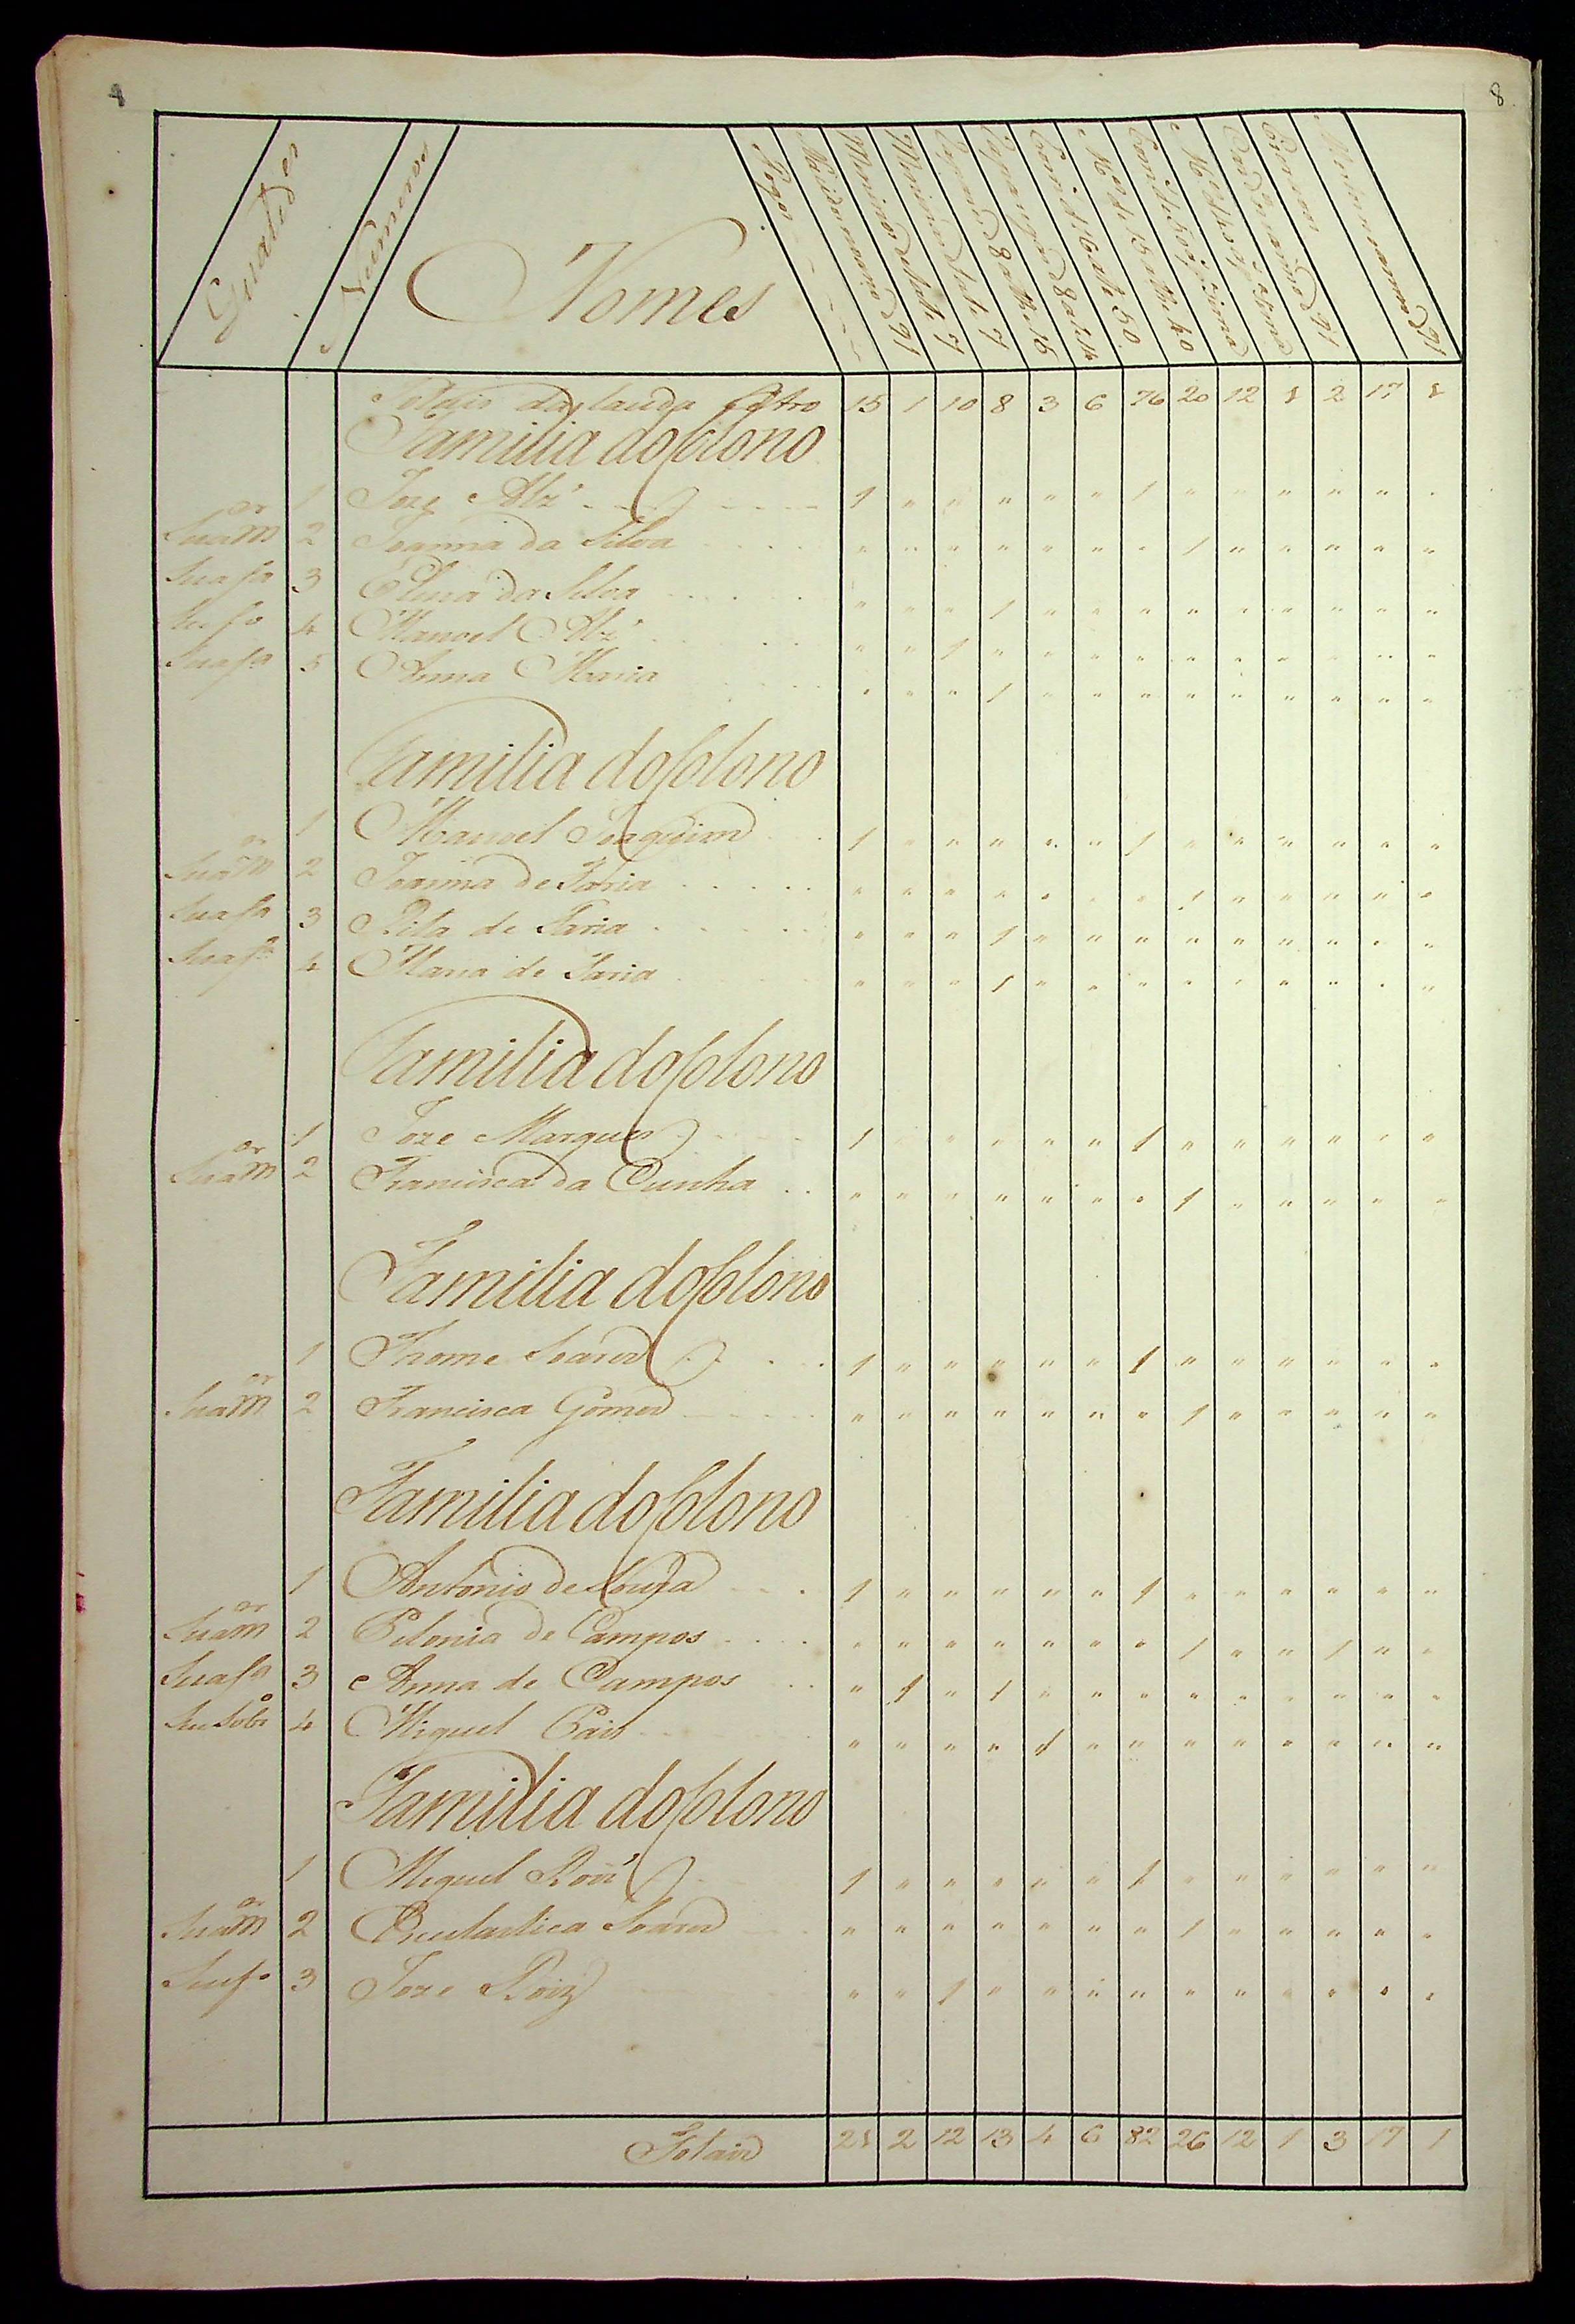 8
Qualid.es
Numeros
Nomes
Fogos
Nascidos no anno d 91
Totais da lauda retro 15 1 10 8 3 6 76 20 12 1 2 17 1
Familia do Colono
1 Joze Alz' 1 " " " " " 1 " " " " " "
Sua m.er 2 Joanna da Silva " " " " " " " 1 " " " " "
Sua f.a 3 Elena da Silva " " " 1 " " " " " " " " "
Seu f.o 4 Manoel Alz' " " 1 " " " " " " " " " "
Sua f.a 5 Anna Maria " " " 1 " " " " " " " " "
Familia do Colono
1 Manoel Joaquim 1 " " " " " 1 " " " " " "
Sua m.er 2 Joanna de Faria " " " " " " " 1 " " " " "
Sua f.a 3 Rita de Faria " " " 1 " " " " " " " " "
Sua f.a 4 Maria de Faria " " " 1 " " " " " " " " "
Familia do Colono
1 Joze Marques 1 " " " " " 1 " " " " " "
Sua m.er 2 Francisca da Cunha " " " " " " " 1 " " " " "
Familia do Colono
1 Thome Soares 1 " " " " " 1 " " " " " "
Sua m.er 2 Francisca Gomes " " " " " " " 1 " " " " "
Familia do Colono
1 Antonio de Souza 1 " " " " " 1 " " " " " "
Sua m.er 2 Pelonia de Campos " " " " " " " 1 " " 1 " "
Sua f.a 3 Anna de Campos " 1 " 1 " " " " " " " " "
Seu sobr.o 4 Miguel Pais " " " " 1 " " " " " " " "
Familia do Colono
1 Miguel Roiz' 1 " " " " " 1 " " " " " "
Sua m.er 2 Escolastica Soares " " " " " " " 1 " " " " "
Seu f.o 3 Joze Roiz " " 1 " " " " " " " " " "
Totais 21 2 12 13 4 6 82 26 12 1 3 17 1